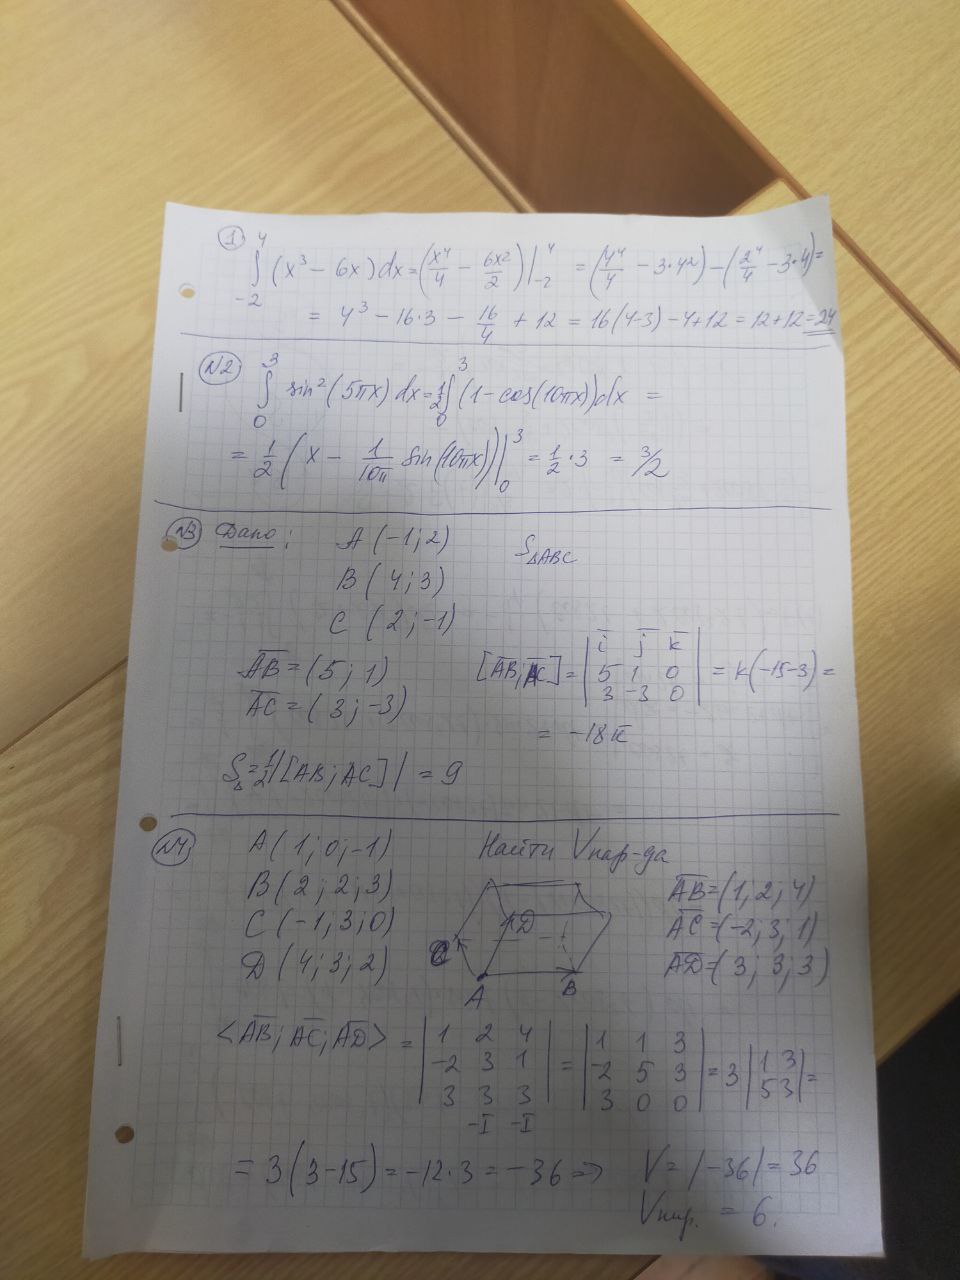 1
∫₋₂⁴ (x³ − 6x) dx = (x⁴/4 − 6x²/2)|₋₂⁴ = (4⁴/4 − 3·4²) − (2⁴/4 − 3·4) =
= 4³ − 16·3 − 16/4 + 12 = 16(4−3) − 4+12 = 12+12 = 24
N2
∫₀³ sin²(5πx) dx = 1/2 ∫₀³ (1 − cos(10πx)) dx =
= 1/2 (x − 1/10π sin(10πx))|₀³ = 1/2 · 3 = 3/2
N3 Дано: A (−1; 2) S△ABC
B (4; 3)
C (2; −1)
AB = (5; 1) [AB; AC] = |i j k; 5 1 0; 3 −3 0| = k(−15−3) =
AC = (3; −3)
= −18k
S△ = 1/2 |[AB; AC]| = 9
N4. A (1; 0; −1) Найти Vпар-да
B (2; 2; 3) AB = (1; 2; 4)
C (−1; 3; 0) D AC = (−2; 3; 1)
D (4; 3; 2) C AD = (3; 3; 3)
A B
<AB; AC; AD> = |1 2 4; −2 3 1; 3 3 3| = |1 1 3; −2 5 3; 3 0 0| = 3 |1 3; 5 3| =
−I −I
= 3(3−15) = −12·3 = −36 => V = |−36| = 36
Vпир. = 6.